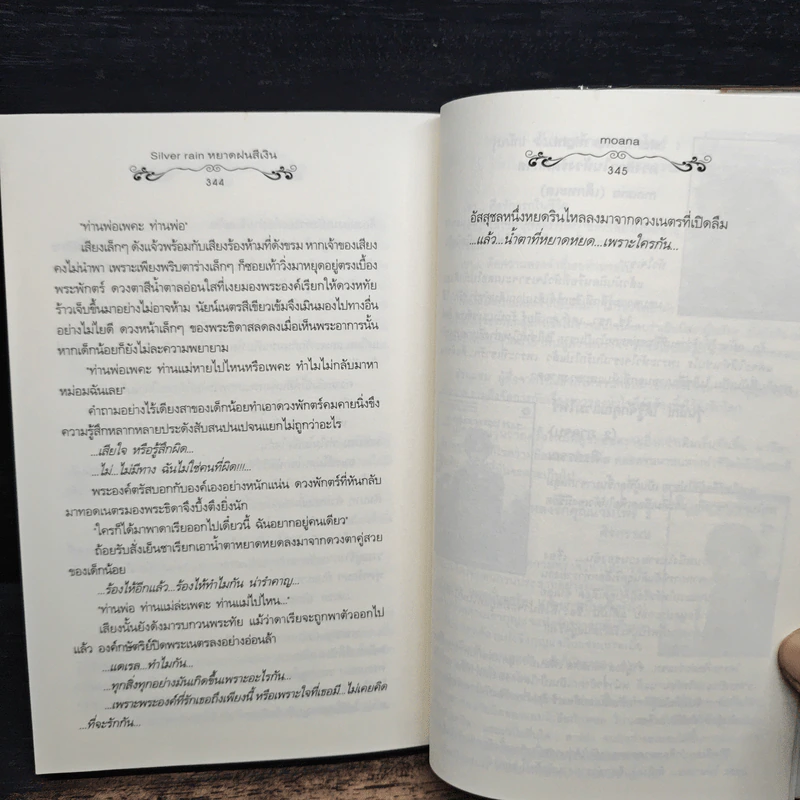 Silver rain หยาดฝนสีเงิน
344
"ท่านพ่อเพคะ ท่านพ่อ"
เสียงเล็กๆ ดังแจ้วพร้อมกับเสียงร้องห้ามที่ดังขรม หากเจ้าของเสียง
คงไม่นำพา เพราะเพียงพริบตาร่างเล็กๆ ก็ซอยเท้าวิ่งมาหยุดอยู่ตรงเบื้อง
พระพักตร์ ดวงตาสีน้ำตาลอ่อนใสที่เงยมองพระองค์เรียกให้ดวงหทัย
ร้าวเจ็บขึ้นมาอย่างไม่อาจห้าม นัยน์เนตรสีเขียวเข้มจึงเมินมองไปทางอื่น
อย่างไม่ไยดี ดวงหน้าเล็กๆ ของพระธิดาสลดลงเมื่อเห็นพระอาการนั้น
หากเด็กน้อยก็ยังไม่ละความพยายาม
"ท่านพ่อเพคะ ท่านแม่หายไปไหนหรือเพคะ ทำไมไม่กลับมาหา
หม่อมฉันเลย"
คำถามอย่างไร้เดียงสาของเด็กน้อยทำเอาดวงพักตร์คมคายนิ่งขึง
ความรู้สึกหลากหลายประดังสับสนปนเปจนแยกไม่ถูกว่าอะไร
...เสียใจ หรือรู้สึกผิด...
...ไม่...ไม่มีทาง ฉันไม่ใช่คนที่ผิด!!!...
พระองค์ตรัสบอกกับองค์เองอย่างหนักแน่น ดวงพักตร์ที่หันกลับ
มาทอดเนตรมองพระธิดาจึงบึ้งตึงยิ่งนัก
"ใครก็ได้มาพาดาเรียออกไปเดี๋ยวนี้ ฉันอยากอยู่คนเดียว"
ถ้อยรับสั่งเย็นชาเรียกเอาน้ำตาหยาดหยดลงมาจากดวงตาคู่สวย
ของเด็กน้อย
...ร้องไห้อีกแล้ว...ร้องไห้ทำไมกัน น่ารำคาญ...
"ท่านพ่อ ท่านแม่ล่ะเพคะ ท่านแม่ไปไหน..."
เสียงนั้นยังดังมารบกวนพระทัย แม้ว่าดาเรียจะถูกพาตัวออกไป
แล้ว องค์กษัตริย์ปิดพระเนตรลงอย่างอ่อนล้า
...แดเรล...ทำไมกัน...
...ทุกสิ่งทุกอย่างมันเกิดขึ้นเพราะอะไรกัน...
...เพราะพระองค์ที่รักเธอถึงเพียงนี้ หรือเพราะใจที่เธอมี...ไม่เคยคิด
ที่จะรักกัน...
moana
345
อัสสุชลหนึ่งหยดรินไหลลงมาจากดวงเนตรที่เปิดลืม
...แล้ว...น้ำตาที่หยาดหยด...เพราะใครกัน...